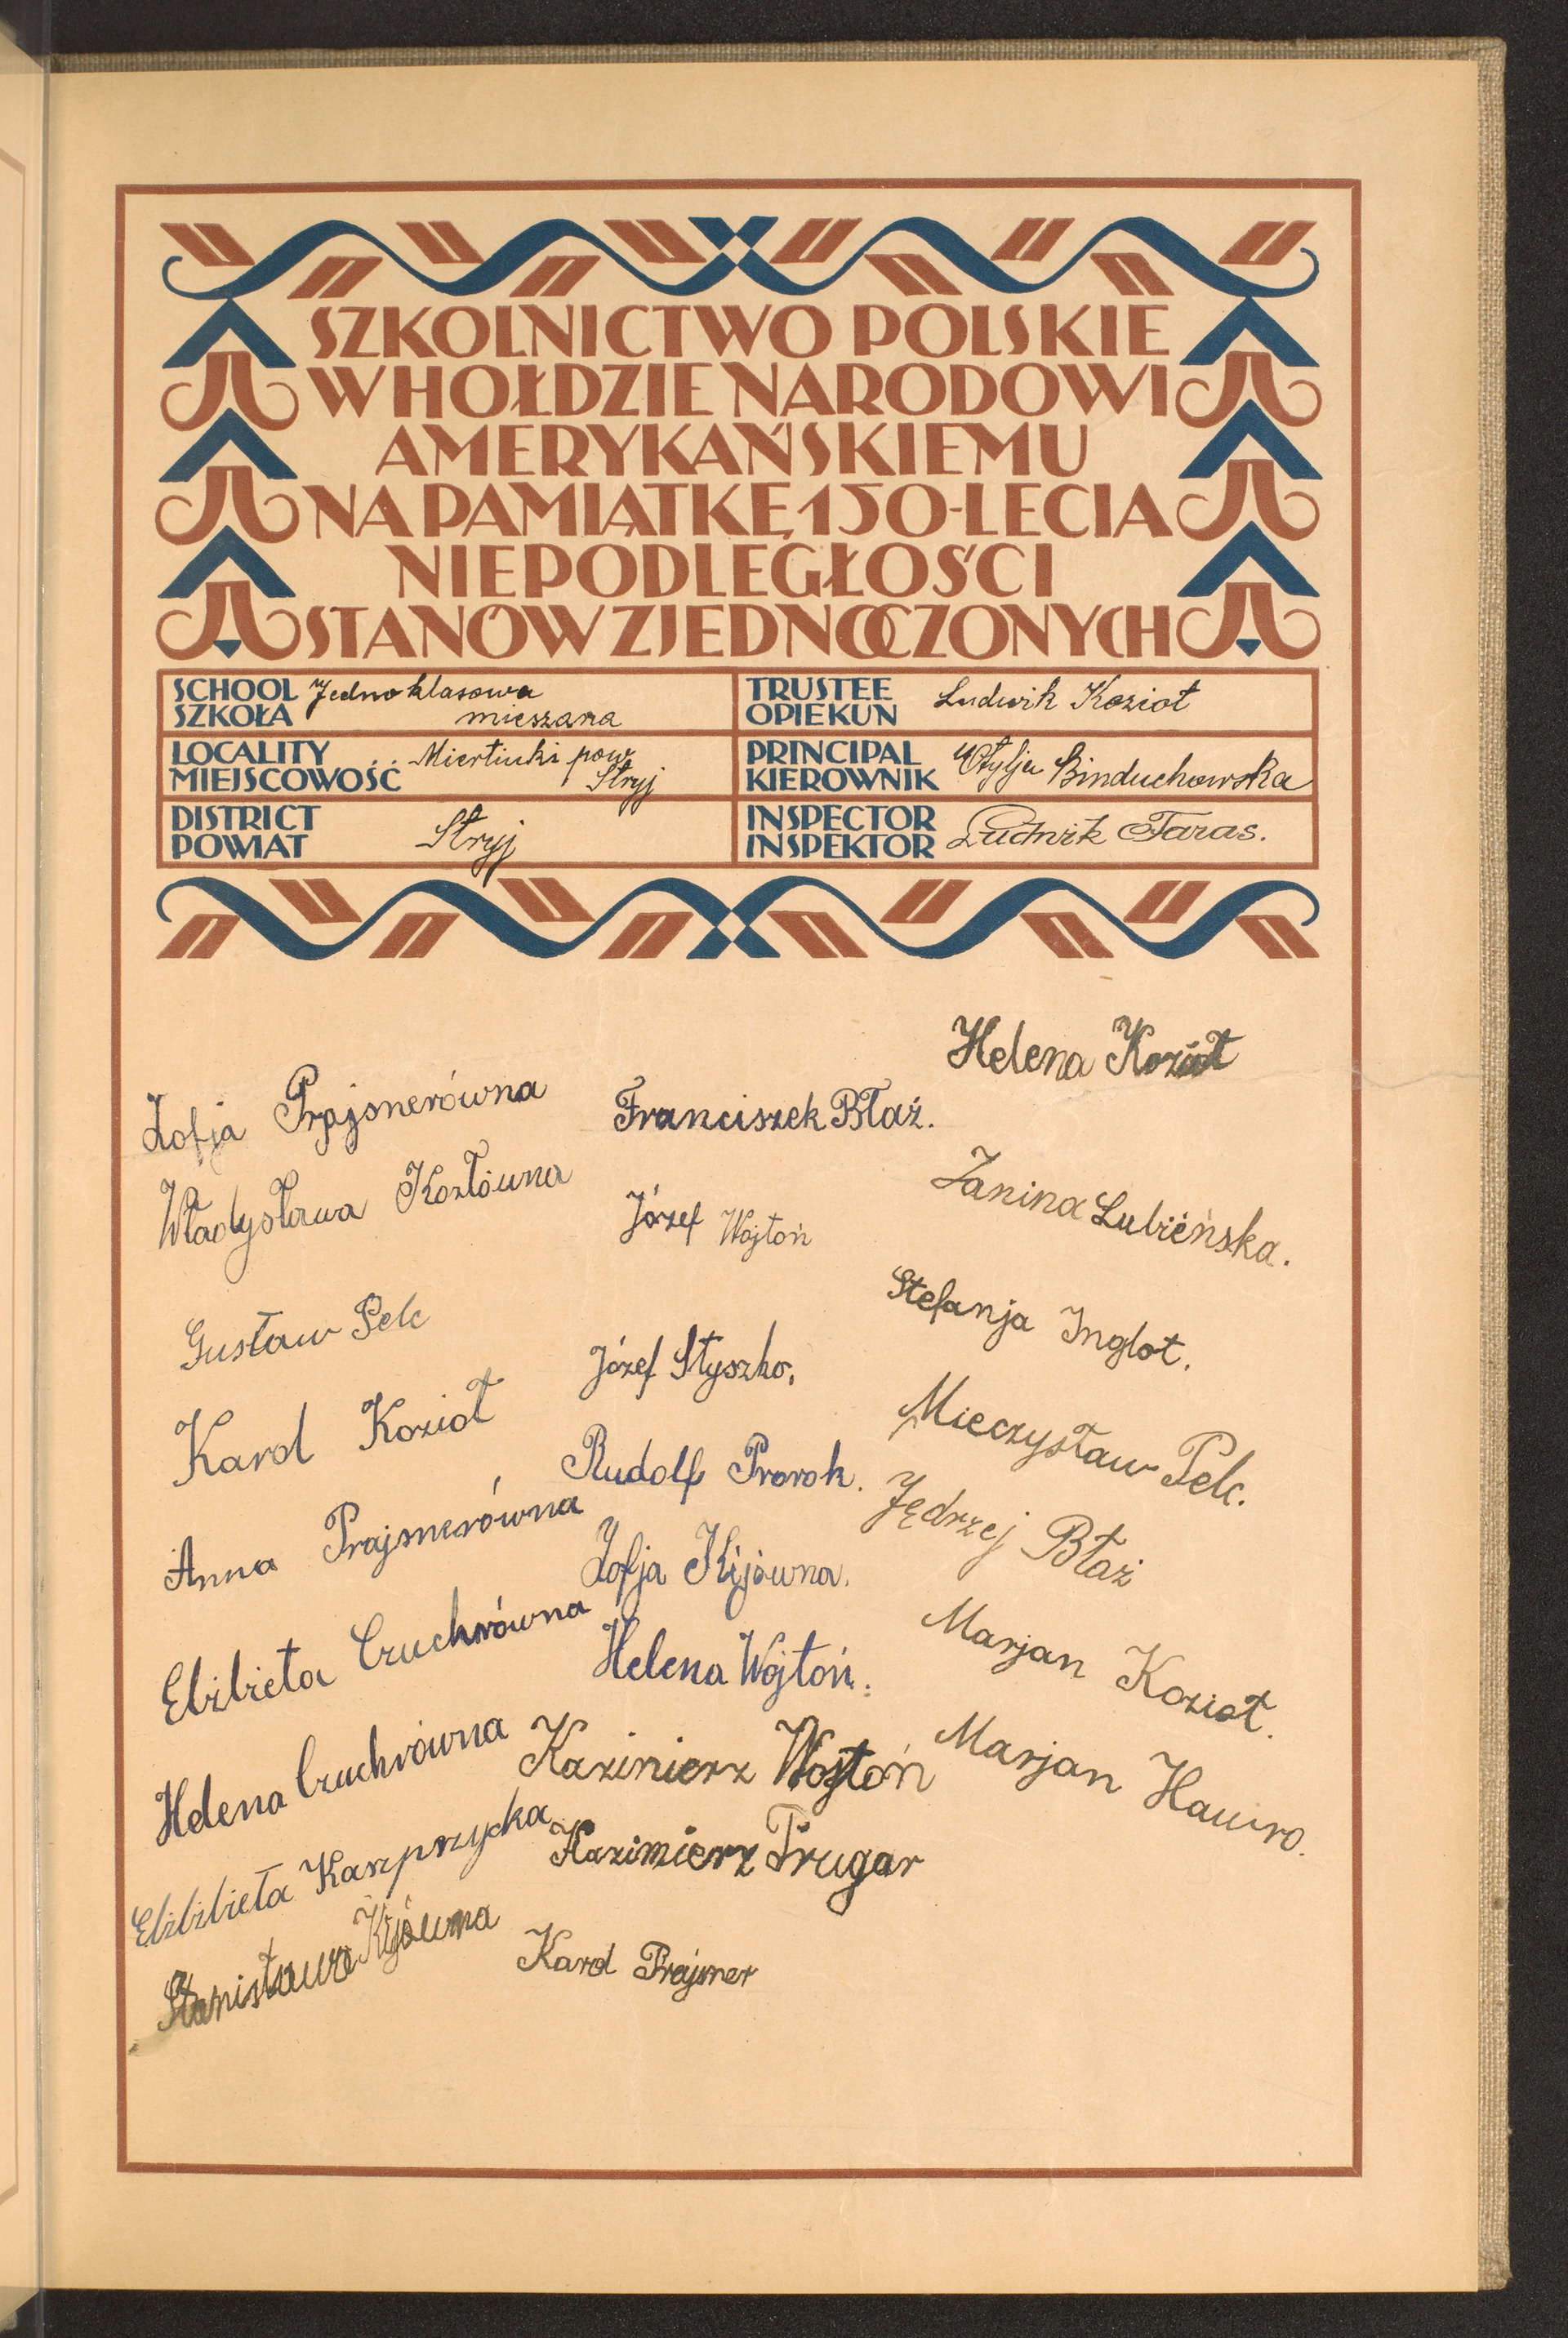 SZKOLNICTWO POLSKIE
W HOŁDZIE NARODOWI
AMERYKAŃSKIEMU
NA PAMIĄTKĘ 150-LECIA
NIEPODLEGŁOŚCI
STANÓW ZJEDNOCZONYCH
SCHOOL
SZKOŁA
Jedno klasowa
mieszana
LOCALITY
MIEJSCOWOŚĆ
Miertiuki pow.
Stryj
DISTRICT
POWIAT
Stryj
TRUSTEE
OPIEKUN
Ludwik Kozioł
PRINCIPAL
KIEROWNIK
Otylja Binduchowska
INSPECTOR
INSPEKTOR
Ludwik Taras.
Zofja Prajsnerówna
Władysława Kozłówna
Gustaw Pelc
Karol Kozioł
Anna Prajsnerówna
Elżbieta Czuchrówna
Helena Czuchrówna
Elżbieta Kasprzycka
Stanisława Kijówna
Franciszek Błaż.
Józef Wojtoń
Józef Styszko.
Rudolf Prorok.
Zofja Kijówna.
Helena Wojtoń.
Kazimierz Wojtoń
Kazimierz Trugar
Karol Prajsner
Helena Kozioł
Janina Lubieńska.
Stefanja Inglot.
Mieczysław Pelc.
Jędrzej Błaż
Marjan Kozioł.
Marjan Hawro.